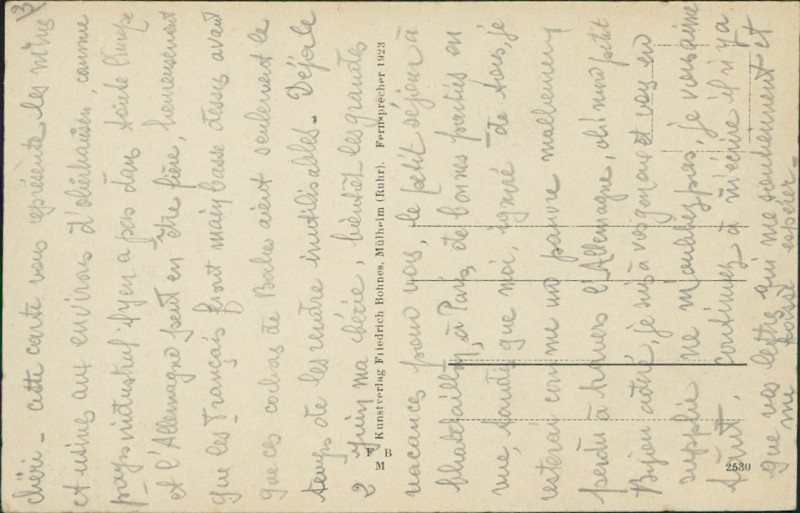 3
chéri - cette carte vous représente les mines
et usines aux environs d'oberhausen, comme
pays industriel il n'y en a pas dans toute l'Europe
et l'Allemagne peut en être fière, heureusement
que les Français font main basse dessus avant
que ces cochons de Boches aient seulement le
temps de les rendre inutilisables. Déjà le
2 juin ma chérie, bientôt les grandes
Kunstverlag Friedrich Bohnes, Mülheim (Ruhr). Fernsprecher 1923
F B
M
vacances pour vous, le petit séjour à
à Paris, de bonnes parties en
vue, tandis que moi, ignoré de tous, je
resterai comme un pauvre malheureux
perdu à travers l'Allemagne, oh! mon petit
Bijou adoré, je suis à vos genoux et vous en
supplie ne m'oubliez pas, je vous aime
tant, continuez à m'écrire il n'y a
que vos lettres qui me soutiennent et
me fasse espérer -
2530